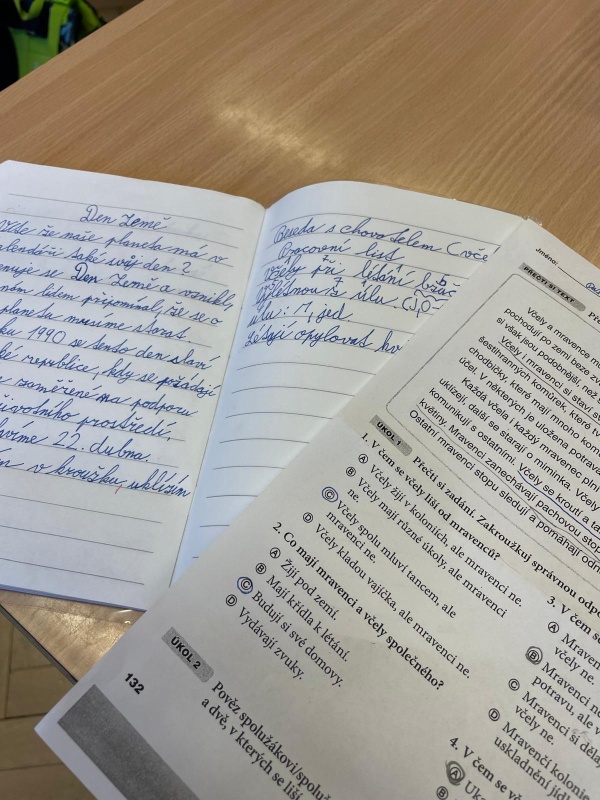 Den Země
Víte že naše planeta má v
kalendáři také svůj den?
nuje se Den Země a vznikl,
ním lidem připomínal, že se o
planeta musíme starat.
ku 1990 se tento den slaví
ké republice, kdy se pořádají
zaměřené na podporu
životního prostředí.
víme 22. dubna.
v kroužku uklízím
Beseda s chovatelem (vče
Pracovní list
Včely při létání
z úlu
úlu: 1, jed
Létají opylovat kv
Jméno:
PŘEČTI SI TEXT
Včely a mravence mů
pochodují po zemi beze zv
si však jsou podobnější, než
Včely i mravenci si staví s
šestihranných komůrek, které tv
chodbičky, které mají mnoho kom
účel. V některých je uložena potrava
Každá včela i každý mravenec plní
uklízejí, další se starají o miminka. Včely
komunikují s ostatními. Včely se kroutí a ta
květiny. Mravenci zanechávají pachovou stop
Ostatní mravenci stopu sledují a pomáhají odn
ÚKOL 1
Přečti si zadání. Zakroužkuj správnou odpo
1. V čem se včely liší od mravenců?
A Včely žijí v koloniích, ale mravenci ne.
B Včely mají různé úkoly, ale mravenci
ne.
C Včely spolu mluví tancem, ale
mravenci ne.
D Včely kladou vajíčka, ale mravenci ne.
2. Co mají mravenci a včely společného?
A Žijí pod zemí.
B Mají křídla k létání.
C Budují si své domovy.
D Vydávají zvuky.
3. V čem se
A Mrave
včely ne.
B Mravenci ne
potravu, ale v
C Mravenci
včely ne.
D Mravenci si děla
uskladnění jídl
4. V čem se v
A Ul
B Uk
ÚKOL 2
Pověz spolužákovi/spoluž
a dvě, v kterých se liší
132